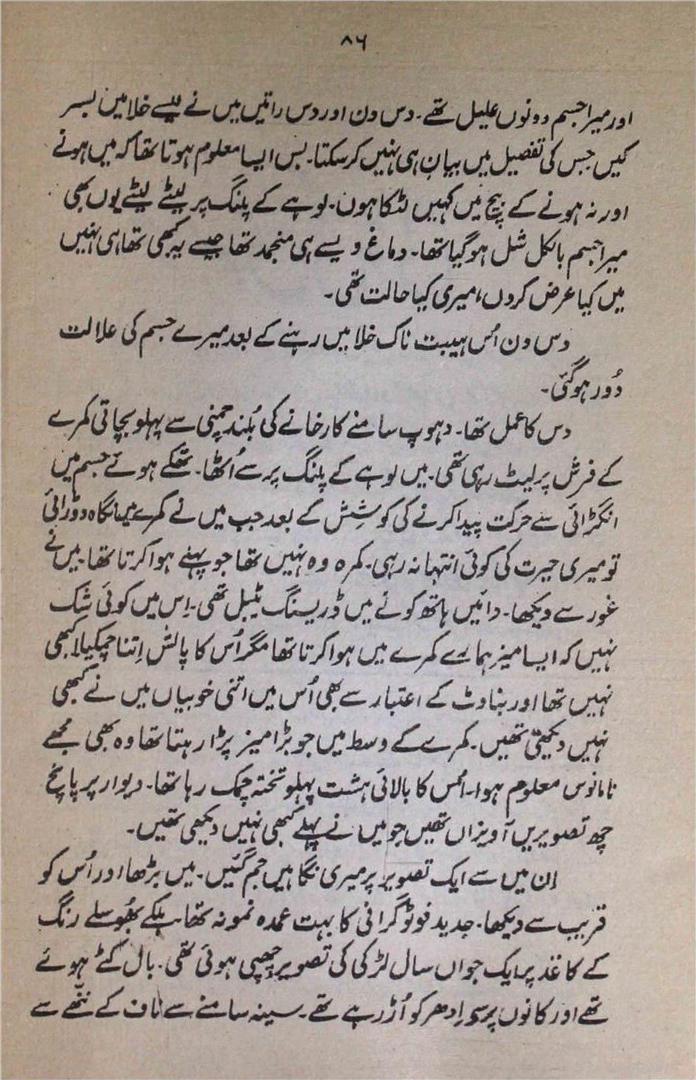 ۸۶
اور میرا جسم دونوں علیل تھے۔ دس دن اور دس راتیں میں نے ایسے خلا میں بسر
کیں جس کی تفصیل میں بیان ہی نہیں کر سکتا۔ بس ایسا معلوم ہوتا تھا کہ میں ہونے
اور نہ ہونے کے بیچ میں کہیں لٹکا ہوں۔ لوہے کے پلنگ پر لیٹے لیٹے یوں بھی
میرا جسم بالکل شل ہو گیا تھا۔ دماغ ویسے ہی منجمد تھا جیسے یہ کبھی تھا ہی نہیں
میں کیا عرض کروں، میری کیا حالت تھی۔
دس دن اُس ہیبت ناک خلا میں رہنے کے بعد میرے جسم کی علالت
دُور ہو گئی۔
دس کا عمل تھا۔ دھوپ سامنے کارخانے کی بُلند چمنی سے پہلو بچاتی کمرے
کے فرش پر لیٹ رہی تھی۔ میں لوہے کے پلنگ پر سے اُٹھا۔ تھکے ہوئے جسم میں
انگڑائی سے حرکت پیدا کرنے کی کوشِش کے بعد جب میں نے کمرے میں نگاہ دوڑائی
تو میری حیرت کی کوئی انتہا نہ رہی۔ کمرہ وہ نہیں تھا جو پہلے ہوا کرتا تھا۔ میں نے
غور سے دیکھا۔ دائیں ہاتھ کونے میں ڈریسنگ ٹیبل تھی۔ اِس میں کوئی شک
نہیں کہ ایسا میز ہمارے کمرے میں ہوا کرتا تھا مگر اُس کا پالش اِتنا چمکیلا کبھی
نہیں تھا اور بناوٹ کے اعتبار سے بھی اُس میں اتنی خوبیاں میں نے کبھی
نہیں دیکھی تھیں۔ کمرے کے وسط میں جو بڑا میز پڑا رہتا تھا وہ بھی مجھے
نامانوس معلوم ہوا۔ اُس کا بالائی ہشت پہلو تختہ چمک رہا تھا۔ دیوار پر پانچ
چھ تصویریں آویزاں تھیں جو میں نے پہلے کبھی نہیں دیکھی تھیں۔
اِن میں سے ایک تصویر پر میری نگاہیں جم گئیں۔ میں بڑھا اور اُس کو
قریب سے دیکھا۔ جدید فوٹو گرافی کا بہت عمدہ نمونہ تھا۔ ہلکے بھُوسلے رنگ
کے کاغذ پر ایک جواں سال لڑکی کی تصویر چھپی ہوئی تھی۔ بال کٹے ہوئے
تھے اور کانوں پر سے اِدھر کو اُڑ رہے تھے۔ سینہ سامنے سے ناف کے ننھے سے